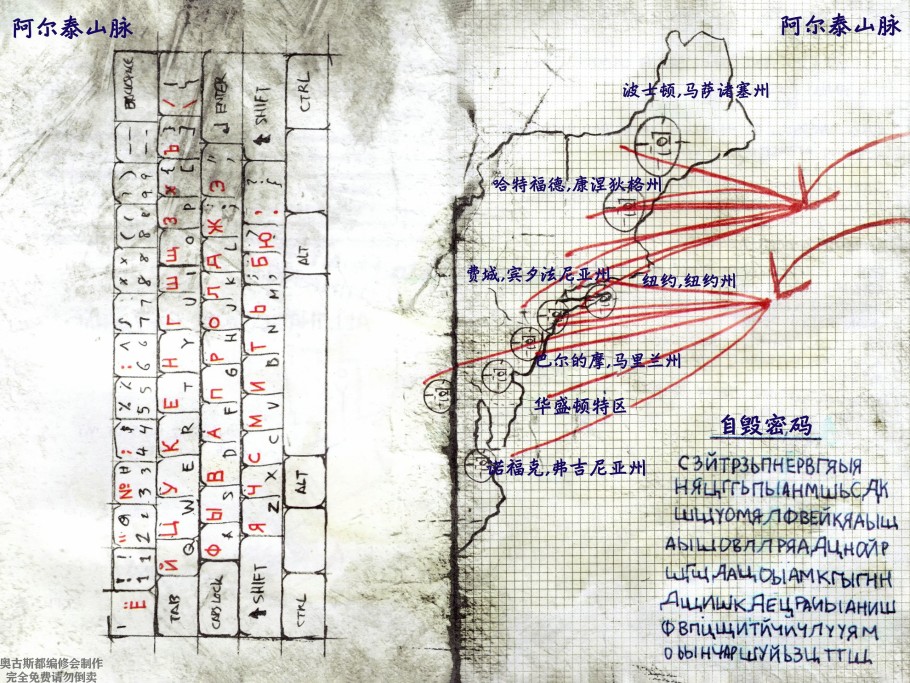 阿尔泰山脉
阿尔泰山脉
波士顿,马萨诸塞州
哈特福德,康涅狄格州
费城,宾夕法尼亚州
纽约,纽约州
巴尔的摩,马里兰州
华盛顿特区
诺福克,弗吉尼亚州
自毁密码
СЗЙТРЗЬПНЕРВГЯЫЯ
НЯЦГГЬПЫАНМШЬСДК
ШЩУОМЯЛФВЕЙКЯАЫЩ
АЫШОВЛЛРЯАДЦНОЙР
ЩГЩДАЩОЫАМКГЫГНН
ДЩИШКДЕЦРАИЫАНИШ
ФВПЦЩИТЙЧИЧЛУУЯМ
ОЫЫНЧАРШУЙЬЗЦТТЩ
Ё 1 ! 2 " @ 3 № # 4 ; $ 5 % 6 : ^ 7 8 9
TAB Й Q Ц W У E К R Е T Н Y Г U Ш I Щ O З P Х [ { Ъ ] } \ /
CAPS LOCK Ф Ы S В D А F П G Р H О J Л K Д L Ж ; : Э ' " ENTER
SHIFT Я Z Ч X С C М V И B Т N Ь M Б Ю SHIFT
CTRL ALT ALT CTRL
奥古斯都编修会制作
完全免费请勿倒卖